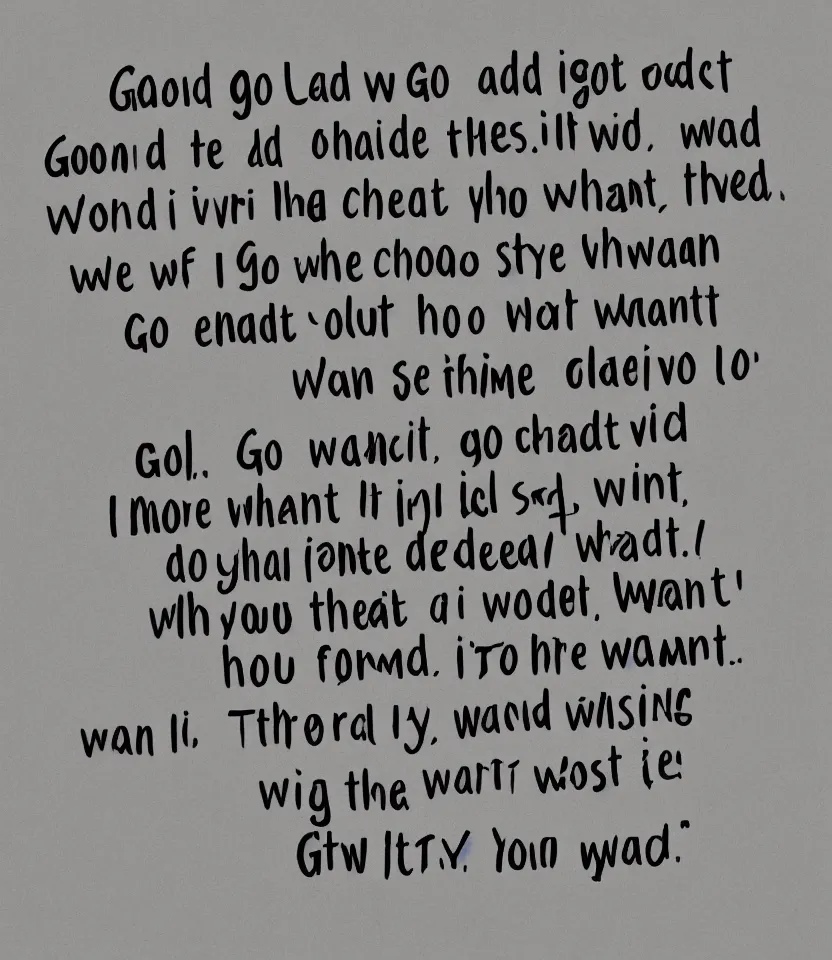 Gaoid go Lad w GO add igot oudct
Goonid te dd ohaide tHes.ilt wid. wad
Wond i ivri lha cheat yho whant, thved.
We wf I Go whe choao stye Vhwaan
Go enadt olut hoo Wat wnantt
Wan Se ihime claeivo lo'
Gol.. Go wancit, go chadt vid
I more whant It ingl icl wint,
do yhai ionte dedeeal whadt.!
wlh yoou theat a i wodet, Wwant'
hou formd. i'To hre wamnt..
wan li. Tthrord ly, wacid wilsiNG
wig the wartt wost ie:
Gtw ItT.Y. Yoin wad."